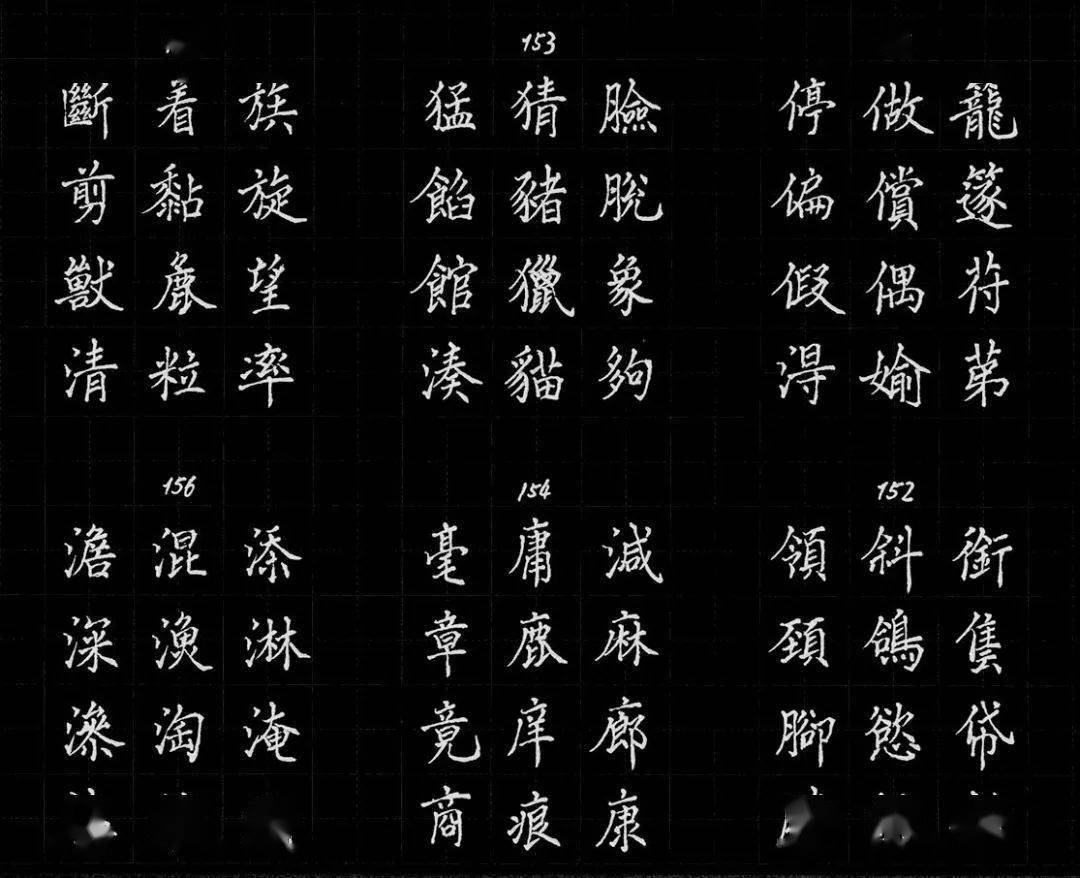 籠篴符第
做償偶婾
停偏假淂
153
臉脫象夠
猜豬獵貓
猛餡館湊
族旋望率
着黏麁粒
斷剪獸清
152
銜隻帒
斜鴿慾
領頸腳
154
減麻廊康
庸鹿庠痕
毫章竟商
156
添淋淹
混漁淘
澹深滲